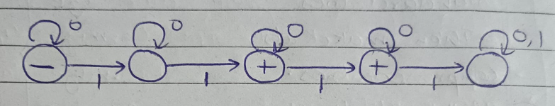 0 0 0 0 0,1
- + +
1 1 1 1